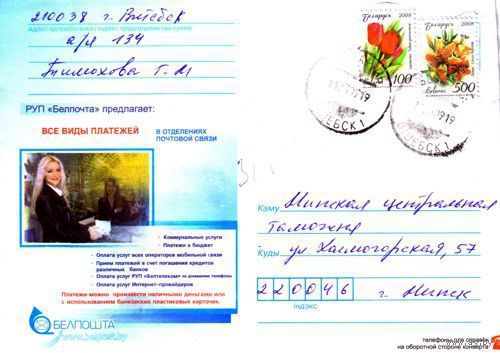 210038 г. Витебск
адрас адпраўшчыка / індэкс прадпрыемства сувязі
а/я 134
Тимохова Г. М
РУП «Белпочта» предлагает:
ВСЕ ВИДЫ ПЛАТЕЖЕЙ
В ОТДЕЛЕНИЯХ
ПОЧТОВОЙ СВЯЗИ
- Коммунальные услуги
- Платежи в бюджет
- Оплата услуг всех операторов мобильной связи
- Прием платежей в счет погашения кредитов
различных банков
- Оплата услуг РУП «Белтелеком» за домашние телефоны
- Оплата услуг Интернет-провайдеров
Платежи можно произвести наличными деньгами или
с использованием банковских пластиковых карточек.
БЕЛПОШТА
www.belpost.by
Беларусь 2008
100
Беларусь 2008
Belarus
500
Каму Минская центральная
таможня
Куды ул. Холмогорская, 57
220046 г. Минск
Індэкс
телефоны для справок
на оборотной стороне конверта